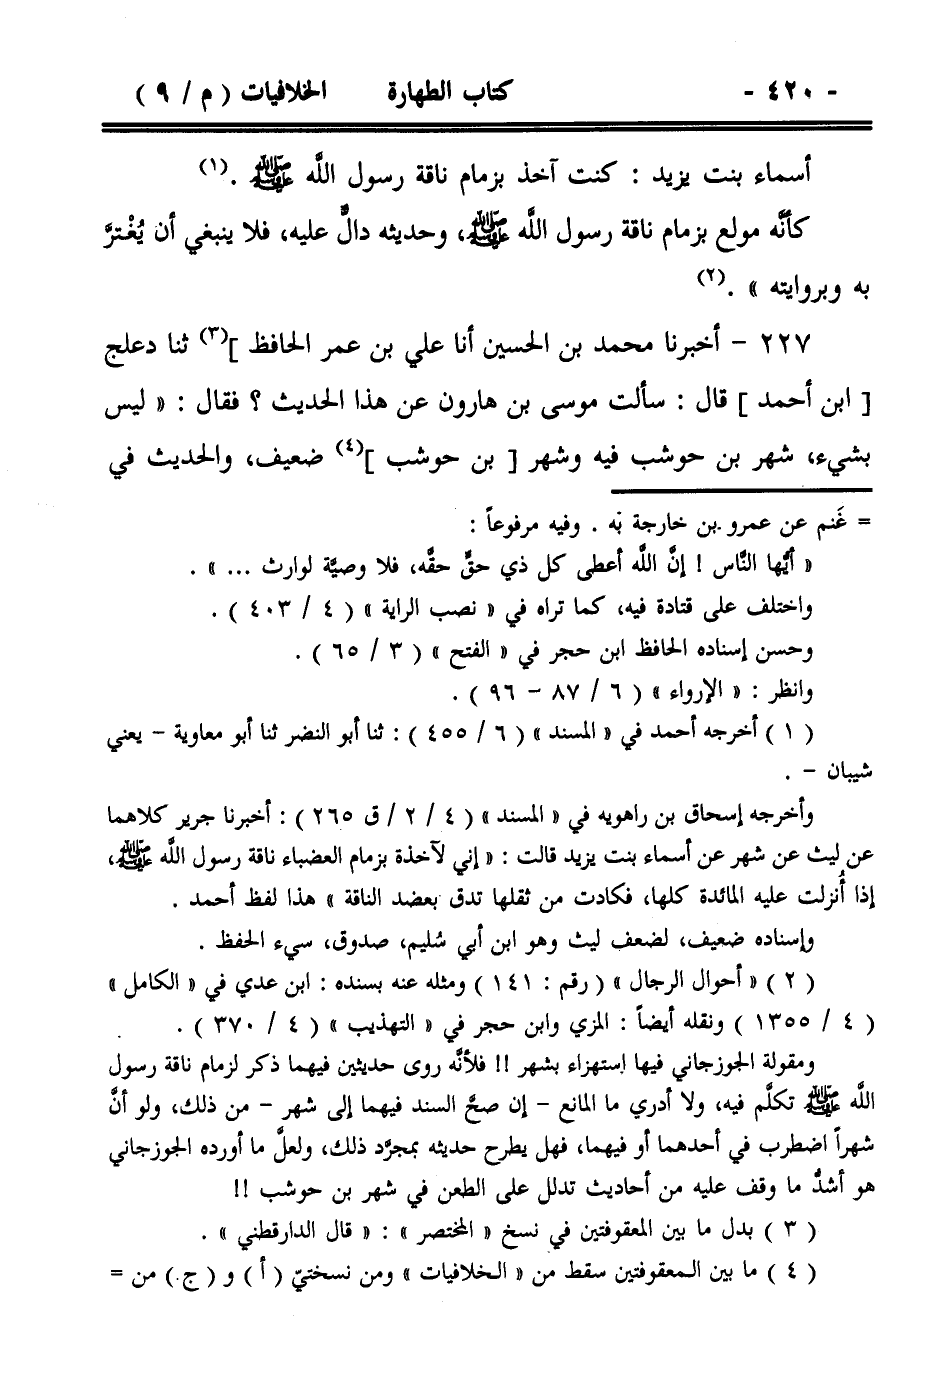 - ٤٢٠ - كتاب الطهارة الخلافيات ( م / ٩ )
أسماء بنت يزيد : كنت آخذ بزمام ناقة رسول اللَّه ﷺ .(١)
كأنَّه مولع بزمام ناقة رسول اللَّه ﷺ، وحديثه دالٌّ عليه، فلا ينبغي أن يُغْترَّ
به وبروايته » .(٢)
٢٢٧ - أخبرنا محمد بن الحسين أنا علي بن عمر الحافظ ](٣) ثنا دعلج
[ ابن أحمد ] قال : سألت موسى بن هارون عن هذا الحديث ؟ فقال : « ليس
بشيء، شهر بن حوشب فيه وشهر [ بن حوشب ](٤) ضعيف، والحديث في
= غَنم عن عمرو بن خارجة به . وفيه مرفوعاً :
« أيُّها النَّاس ! إنَّ اللَّه أعطى كل ذي حقٍّ حقَّه، فلا وصيَّة لوارث ... » .
واختلف على قتادة فيه، كما تراه في « نصب الراية » ( ٤ / ٤٠٣ ) .
وحسن إسناده الحافظ ابن حجر في « الفتح » ( ٣ / ٦٥ ) .
وانظر : « الإرواء » ( ٦ / ٨٧ - ٩٦ ) .
( ١ ) أخرجه أحمد في « المسند » ( ٦ / ٤٥٥ ) : ثنا أبو النضر ثنا أبو معاوية - يعني
شيبان - .
وأخرجه إسحاق بن راهويه في « المسند » ( ٤ / ٢ / ق ٢٦٥ ) : أخبرنا جرير كلاهما
عن ليث عن شهر عن أسماء بنت يزيد قالت : « إني لآخذة بزمام العضباء ناقة رسول اللَّه ﷺ،
إذا أُنزلت عليه المائدة كلها، فكادت من ثقلها تدق بعضد الناقة » هذا لفظ أحمد .
وإسناده ضعيف، لضعف ليث وهو ابن أبي سُليم، صدوق، سيء الحفظ .
( ٢ ) « أحوال الرجال » ( رقم : ١٤١ ) ومثله عنه بسنده : ابن عدي في « الكامل »
( ٤ / ١٣٥٥ ) ونقله أيضاً : المزي وابن حجر في « التهذيب » ( ٤ / ٣٧٠ ) .
ومقولة الجوزجاني فيها استهزاء بشهر !! فلأنَّه روى حديثين فيهما ذكر لزمام ناقة رسول
اللَّه ﷺ تكلَّم فيه، ولا أدري ما المانع - إن صحَّ السند فيهما إلى شهر - من ذلك، ولو أنَّ
شهراً اضطرب في أحدهما أو فيهما، فهل يطرح حديثه بمجرَّد ذلك، ولعلَّ ما أورده الجوزجاني
هو أشدُّ ما وقف عليه من أحاديث تدلل على الطعن في شهر بن حوشب !!
( ٣ ) بدل ما بين المعقوفتين في نسخ « المختصر » : « قال الدارقطني » .
( ٤ ) ما بين المعقوفتين سقط من « الخلافيات » ومن نسختيّ ( أ ) و ( ج ) من =